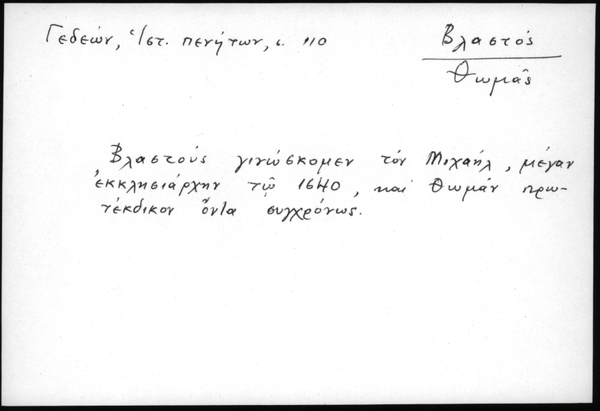 Γεδεών, Ἱστ. πενήτων, σ. 110
Βλαστός
Θωμᾶς
Βλαστούς γινώσκομεν τόν Μιχαήλ, μέγαν
ἐκκλησιάρχην τῷ 1640, καί Θωμάν πρω-
τέκδικον ὄντα συγχρόνως.